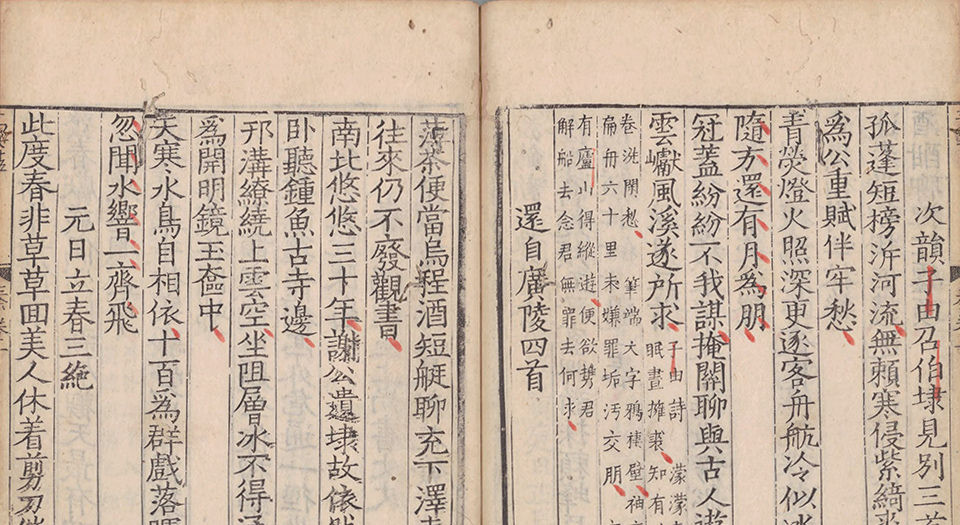 次韻子由召伯埭見別三首
孤蓬短榜泝河流無賴寒侵紫綺裘
為公重賦伴牢愁
青熒燈火照深更逐客舟航冷似冰
隨方還有月為朋
冠蓋紛紛不我謀掩關聊與古人遊
雲巘風溪遂所求
子由詩 濛濛
眠晝擁裘知有
卷洗閑愁 筆端大字鴉棲壁袖
扁舟六十里未嫌罪垢汚交朋
有廬山得縱遊便欲攜君
解船去念君無罪去何求
還自廣陵四首
薄茶便當烏程酒短艇聊充下澤車
往來仍不發觀書
南北悠悠三十年謝公遺埭故依然
臥聽鍾魚古寺邊
邗溝繚繞上雲空坐阻層冰不得通
為開明鏡玉奩中
天寒水鳥自相依十百為群戲落暉
忽聞水響一齊飛
元日立春三絕
此度春非草草回美人休着剪刀催